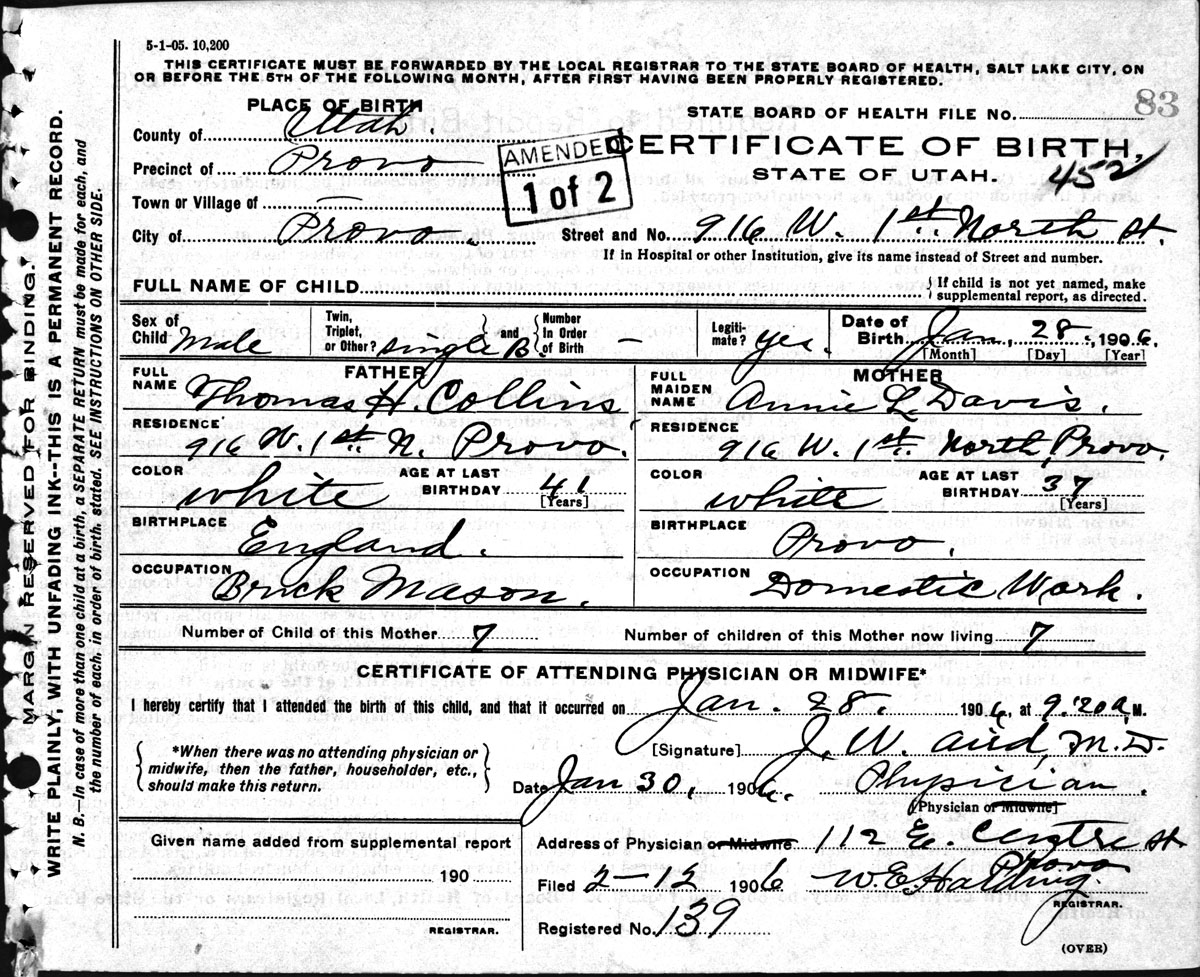 5-1-05. 10,200
THIS CERTIFICATE MUST BE FORWARDED BY THE LOCAL REGISTRAR TO THE STATE BOARD OF HEALTH, SALT LAKE CITY, ON
OR BEFORE THE 5TH OF THE FOLLOWING MONTH, AFTER FIRST HAVING BEEN PROPERLY REGISTERED.
83
PLACE OF BIRTH
STATE BOARD OF HEALTH FILE NO.
County of Utah.
AMENDED
1 of 2
CERTIFICATE OF BIRTH,
Precinct of Provo
STATE OF UTAH.
452
Town or Village of —
City of Provo. Street and No. 916 W. 1st North St.
If in Hospital or other Institution, give its name instead of Street and number.
FULL NAME OF CHILD
If child is not yet named, make
supplemental report, as directed.
Sex of Child Male
Twin, Triplet, or Other? single B. and Number In Order of Birth —
Legitimate? yes.
Date of Birth Jan. 28, 1906.
[Month] [Day] [Year]
FATHER
FULL NAME Thomas H. Collins
RESIDENCE 916 W. 1st N. Provo.
COLOR white AGE AT LAST BIRTHDAY 41
[Years]
BIRTHPLACE England.
OCCUPATION Brick Mason.
MOTHER
FULL MAIDEN NAME Annie L. Davis.
RESIDENCE 916 W. 1st North, Provo.
COLOR white AGE AT LAST BIRTHDAY 37
[Years]
BIRTHPLACE Provo.
OCCUPATION Domestic Work.
Number of Child of this Mother 7 Number of children of this Mother now living 7
CERTIFICATE OF ATTENDING PHYSICIAN OR MIDWIFE*
I hereby certify that I attended the birth of this child, and that it occurred on Jan. 28. 1906, at 9:20 a.M.
*When there was no attending physician or
midwife, then the father, householder, etc.,
should make this return.
[Signature] J. W. Aird M.D.
Date Jan 30, 1906. Physician.
[Physician or Midwife]
Address of Physician or Midwife 112 E. Centre St
Provo
Filed 2-12 1906
REGISTRAR.
Registered No. 139
Given name added from supplemental report
190
REGISTRAR.
(OVER)
MARGIN RESERVED FOR BINDING.
WRITE PLAINLY, WITH UNFADING INK--THIS IS A PERMANENT RECORD.
N. B.—In case of more than one child at a birth, a SEPARATE RETURN must be made for each, and
the number of each, in order of birth, stated. SEE INSTRUCTIONS ON OTHER SIDE.